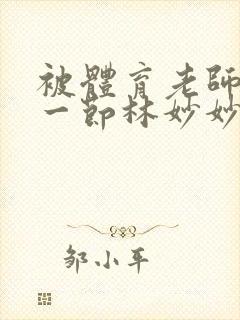 被體育老師
一節林妙妙
邹小平